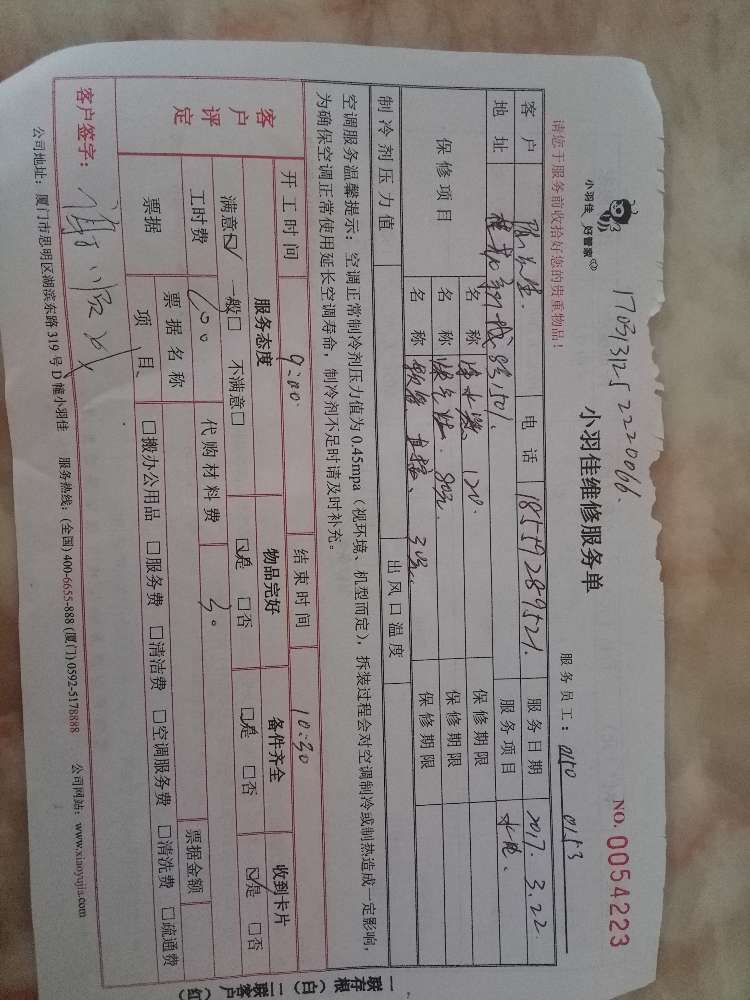 小羽佳 好管家
170313125 2220066
请您于服务前收拾好您的贵重物品！
小羽佳维修服务单
服务员工：0150 0153
NO. 0054223
客户 电话 18559289521 服务日期 2017.3.22
地址 服务项目 水电
保修项目 名称 120 保修期限
名称 保修期限
名称 保修期限
制冷剂压力值 出风口温度
空调服务温馨提示：空调正常制冷剂压力值为0.45mpa（视环境、机型而定），拆装过程会对空调制冷或制热造成一定影响，
为确保空调正常使用延长空调寿命，制冷剂不足时请及时补充。
开工时间 9:00 结束时间 10:30
客户评定
服务态度 物品完好 备件齐全 收到卡片
满意☑ 一般□ 不满意□ ☑是 □否 ☑是 □否 ☑是 □否
工时费 代购材料费
票据 票据名称 票据金额
项目 □搬办公用品 □服务费 □清洁费 □空调服务费 □清洗费 □疏通费
客户签字：
公司地址：厦门市思明区湖滨东路319号D幢小羽佳 服务热线：(全国) 400-6655-888 (厦门) 0592-5178888 公司网站：www.xiaoyujia.com
一联存根（白）二联客户（红）